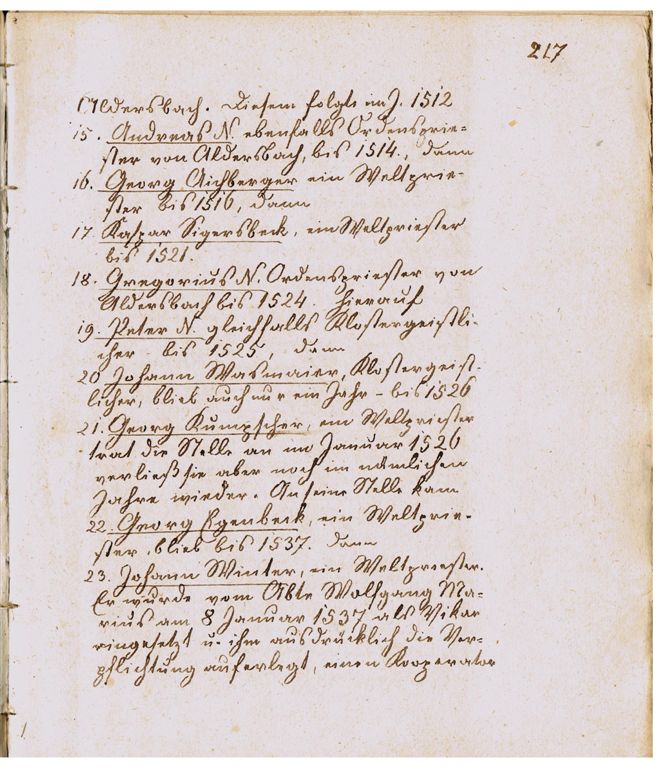 217
Aldersbach. Diesem folgte im J. 1512
15. Andreas N. ebenfalls Ordensprie=
ster von Aldersbach, bis 1514., dann
16. Georg Aichberger ein Weltprie-
ster bis 1516, dann
17. Kaspar Sigersbeck, ein Weltpriester
bis 1521.
18. Gregorius N. Ordenspriester von
Aldersbach bis 1524. Hierauf
19. Peter N. gleichfalls Klostergeistli-
cher - bis 1525, dann
20 Johann Wasmaier, Klostergeist-
licher, blieb auch nur ein Jahr - bis 1526
21. Georg Kumpscher, ein Weltpriester
trat die Stelle an im Januar 1526
verließ sie aber noch im nämlichen
Jahre wieder. An seine Stelle kam
22. Georg Egenbeck, ein Weltprie-
ster, blieb bis 1537. dann
23. Johann Winter, ein Weltpriester.
Er wurde vom Abte Wolfgang Ma-
rius am 8 Januar 1537 als Vikar
eingesetzt u. ihm ausdrücklich die Ver-
pflichtung auferlegt, einen Kooperator